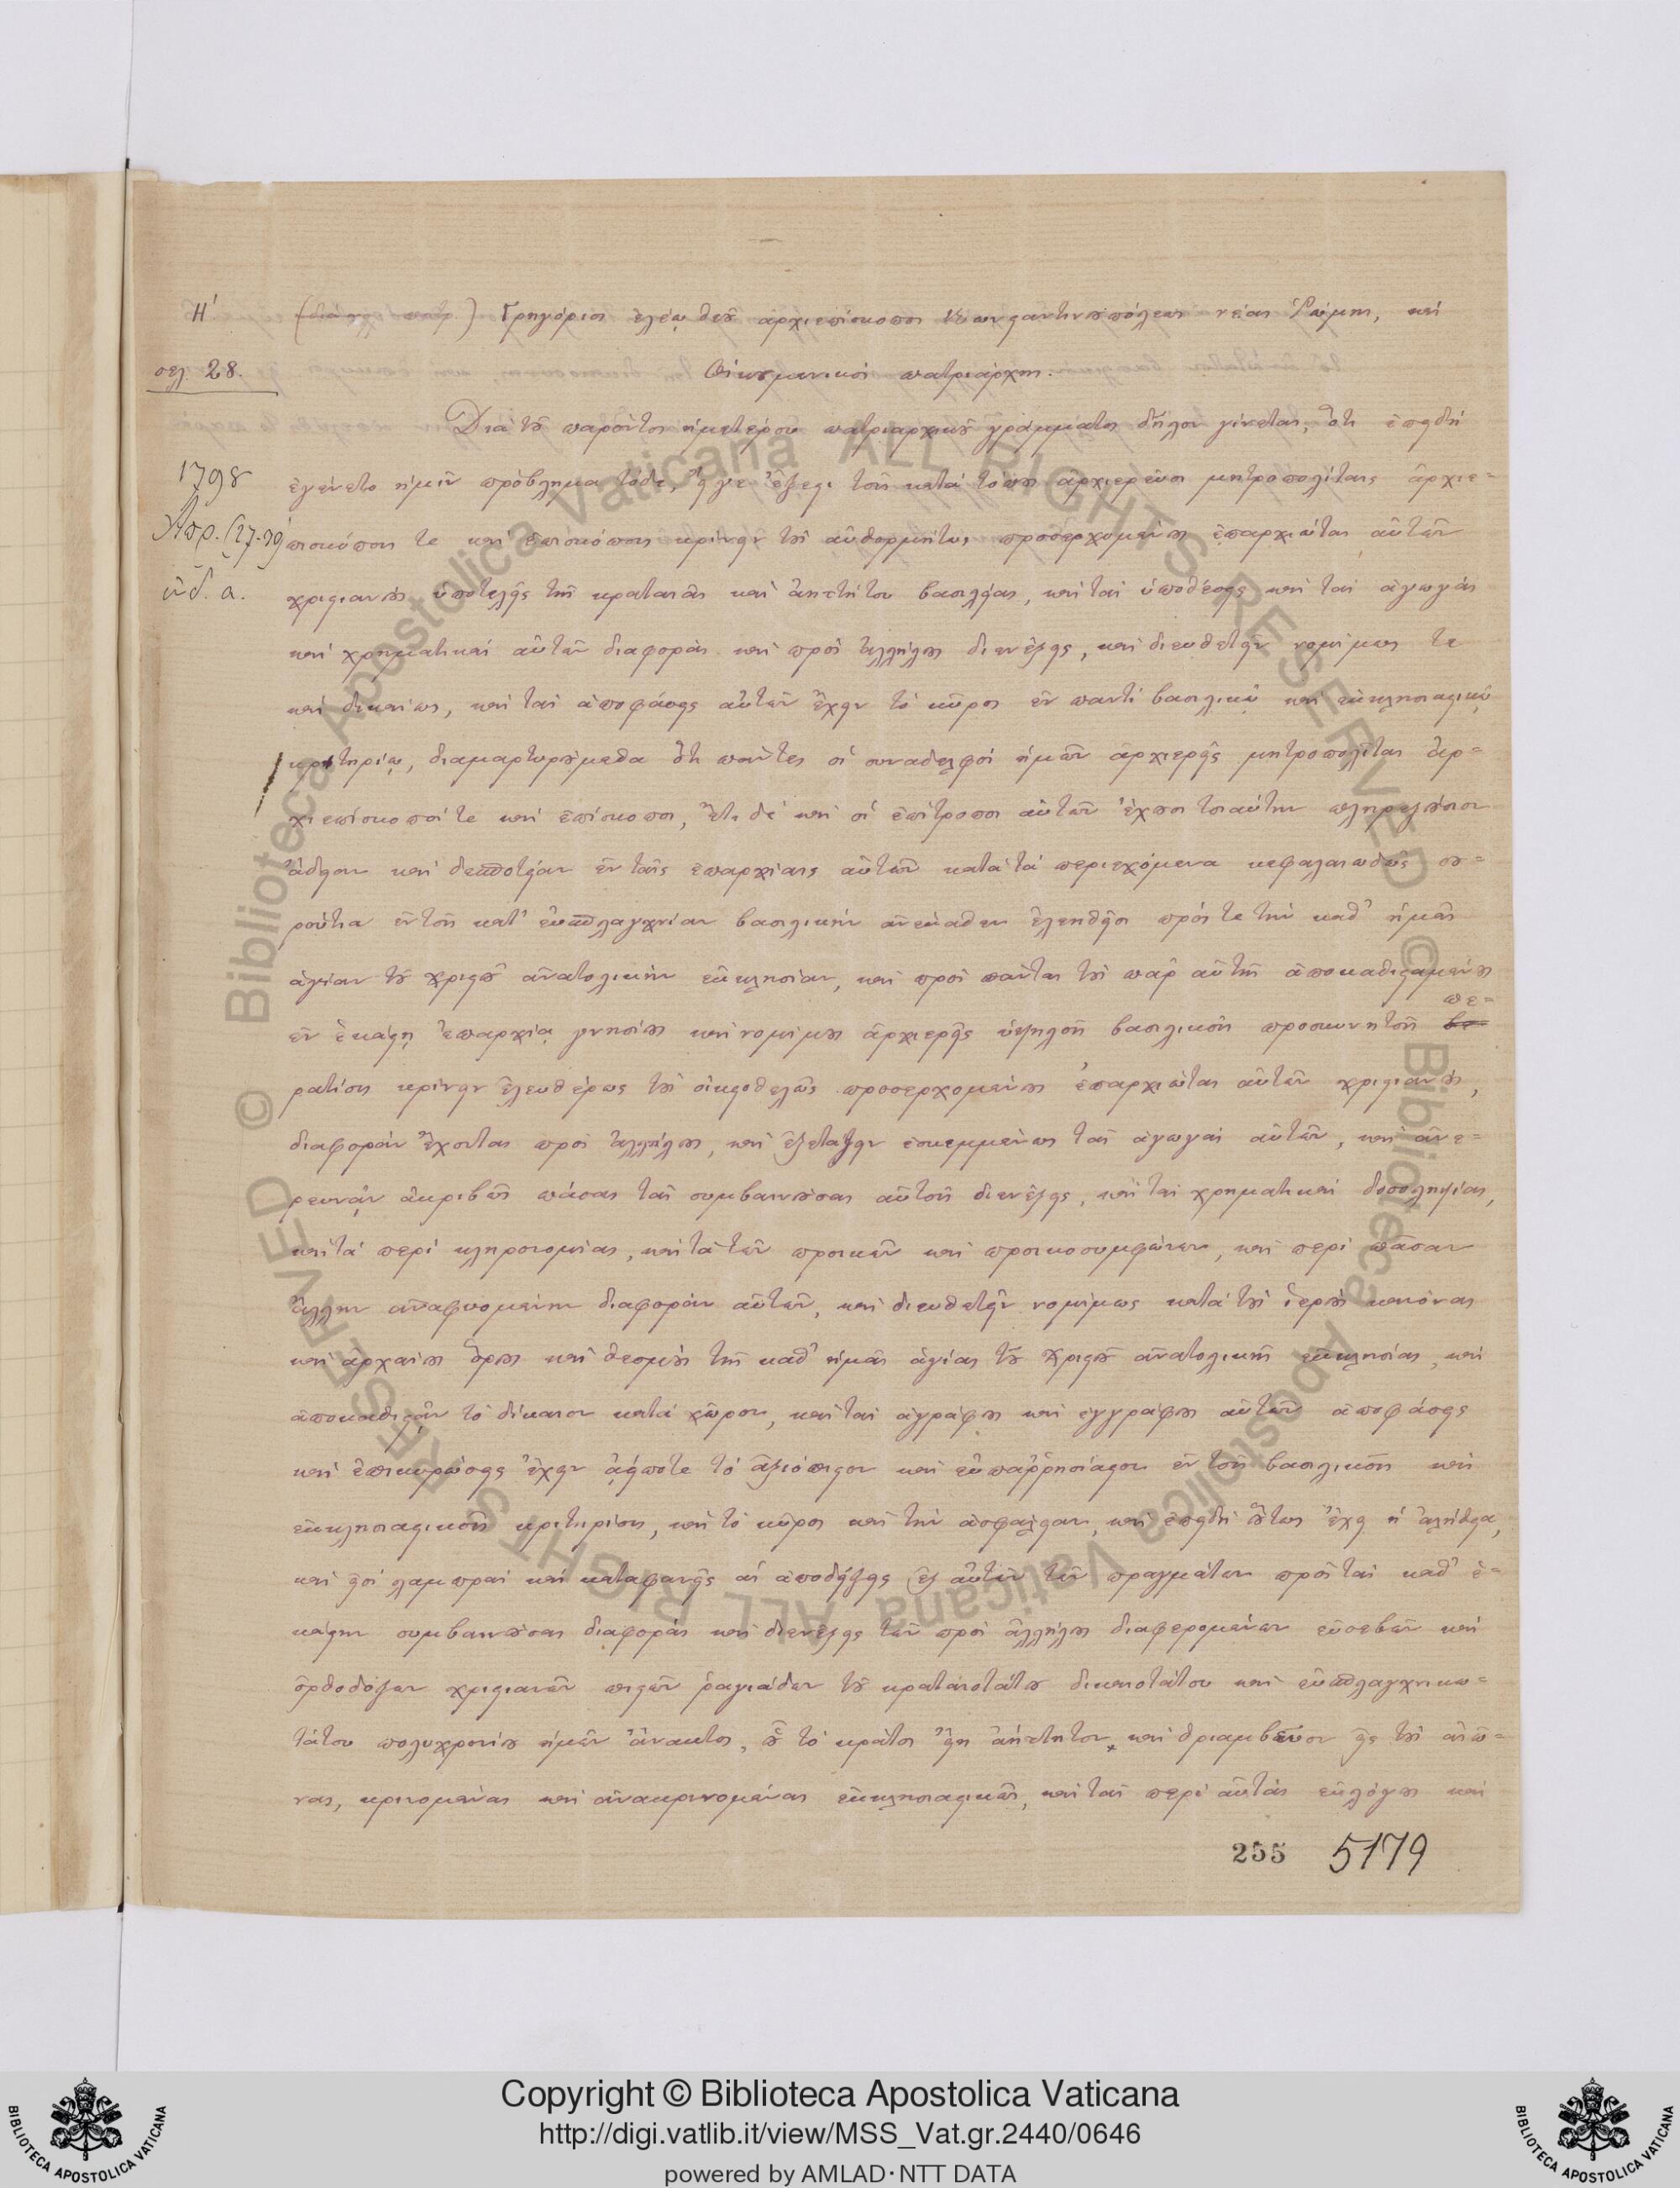 Η΄ Γρηγόριος ἐλέῳ θεοῦ ἀρχιεπίσκοπος Κωνσταντινουπόλεως νέας Ῥώμης, καὶ
σελ. 28. Οἰκουμενικὸς πατριάρχης.
Διὰ τοῦ παρόντος ἡμετέρου πατριαρχικοῦ γράμματος δῆλον γίνεται, ὅτι ἐπειδὴ
1798 ἐγένετο ἡμῖν πρόβλημα τόδε, εἴγε ἔξεστι τοῖς κατὰ τόπους ἀρχιερεῦσι μητροπολίταις ἀρχιε=
Ἀπρ. πισκόποις τε καὶ ἐπισκόποις κρίνειν τοὺς αὐθορμήτως προσερχομένους ἐπαρχιώτας αὐτῶν
ἰνδ. α. χριστιανοὺς ὑποτελεῖς τῆς κραταιᾶς καὶ ἀηττήτου βασιλείας, καὶ τὰς ὑποθέσεις καὶ τὰς ἀγωγὰς
καὶ χρηματικὰς αὐτῶν διαφορὰς καὶ πρὸς ἀλλήλους διενέξεις, καὶ διευθετεῖν νομίμως τε
καὶ δικαίως, καὶ τὰς ἀποφάσεις αὐτῶν ἔχειν τὸ κῦρος ἐν παντὶ βασιλικῷ καὶ ἐκκλησιαστικῷ
κριτηρίῳ, διαμαρτυρούμεθα ὅτι πάντες οἱ συναδελφοὶ ἡμῶν ἀρχιερεῖς μητροπολῖται ἀρ=
χιεπίσκοποί τε καὶ ἐπίσκοποι, ἔτι δὲ καὶ οἱ ἐπίτροποι αὐτῶν ἔχουσι τοιαύτην πληρεξούσιον
ἄδειαν καὶ δεσποτείαν ἐν ταῖς ἐπαρχίαις αὐτῶν κατὰ τὰ περιεχόμενα κεφαλαιωδῶς σου=
ρούτια ἐν τοῖς κατ' εὐσπλαγχνίαν βασιλικὴν ἀνέκαθεν ἐλεηθεῖσι πρός τε τὴν καθ' ἡμᾶς
ἁγίαν τοῦ Χριστοῦ ἀνατολικὴν ἐκκλησίαν, καὶ πρὸς πάντας τοὺς παρ' αὐτῆς ἀποκαθισταμένους
ἐν ἑκάστῃ ἐπαρχίᾳ γνησίους καὶ νομίμους ἀρχιερεῖς ὑψηλοῖς βασιλικοῖς προσκυνητοῖς πε=
ρατίοις κρίνειν ἐλευθέρως τοὺς οἰκειοθελῶς προσερχομένους ἐπαρχιώτας αὐτῶν χριστιανούς,
διαφορὰν ἔχοντας πρὸς ἀλλήλους, καὶ ἐξετάζειν ἐσκεμμένως τὰς ἀγωγὰς αὐτῶν, καὶ ἀνε=
ρευνᾷν ἀκριβῶς πάσας τὰς συμβαινούσας αὐτοῖς διενέξεις, καὶ τὰς χρηματικὰς δοσοληψίας,
καὶ τὰ περὶ κληρονομίας, καὶ τὰ τῶν προικῶν καὶ προικοσυμφώνων, καὶ περὶ πᾶσαν
ἄλλην ἀναφυομένην διαφορὰν αὐτῶν, καὶ διευθετεῖν νομίμως κατὰ τοὺς ἱεροὺς κανόνας
καὶ ἀρχαίους ὅρους καὶ θεσμοὺς τῆς καθ' ἡμᾶς ἁγίας τοῦ Χριστοῦ ἀνατολικῆς ἐκκλησίας, καὶ
ἀποκαθιστᾷν τὸ δίκαιον κατὰ χώραν, καὶ τὰς ἀγράφους καὶ ἐγγράφους αὐτῶν ἀποφάσεις
καὶ ἐπικυρώσεις ἔχειν ἀείποτε τὸ ἀξιόπιστον καὶ εὐπαῤῥησίαστον ἐν τοῖς βασιλικοῖς καὶ
ἐκκλησιαστικοῖς κριτηρίοις, καὶ τὸ κῦρος καὶ τὴν ἀσφάλειαν, καὶ ἐπειδὴ οὕτως ἔχει ἡ ἀλήθεια,
καὶ εἰσὶ λαμπραὶ καὶ καταφανεῖς αἱ ἀποδείξεις ἐξ αὐτῶν τῶν πραγμάτων πρὸς τὰς καθ' ἑ=
κάστην συμβαινούσας διαφορὰς καὶ διενέξεις τῶν πρὸς ἀλλήλους διαφερομένων εὐσεβῶν καὶ
ὀρθοδόξων χριστιανῶν πιστῶν ῥαγιάδων τοῦ κραταιοτάτου δικαιοτάτου καὶ εὐσπλαγχνικω=
τάτου πολυχρονίου ἡμῶν ἄνακτος, οὗ τὸ κράτος εἴη ἀήττητον καὶ θριαμβεῦον εἰς τοὺς αἰῶ=
νας, κρινομένας καὶ ἀνακρινομένας ἐκκλησιαστικῶς, καὶ τὰς περὶ αὐτὰς εὐλόγους καὶ
255 5179
Copyright © Biblioteca Apostolica Vaticana
http://digi.vatlib.it/view/MSS_Vat.gr.2440/0646
powered by AMLAD·NTT DATA